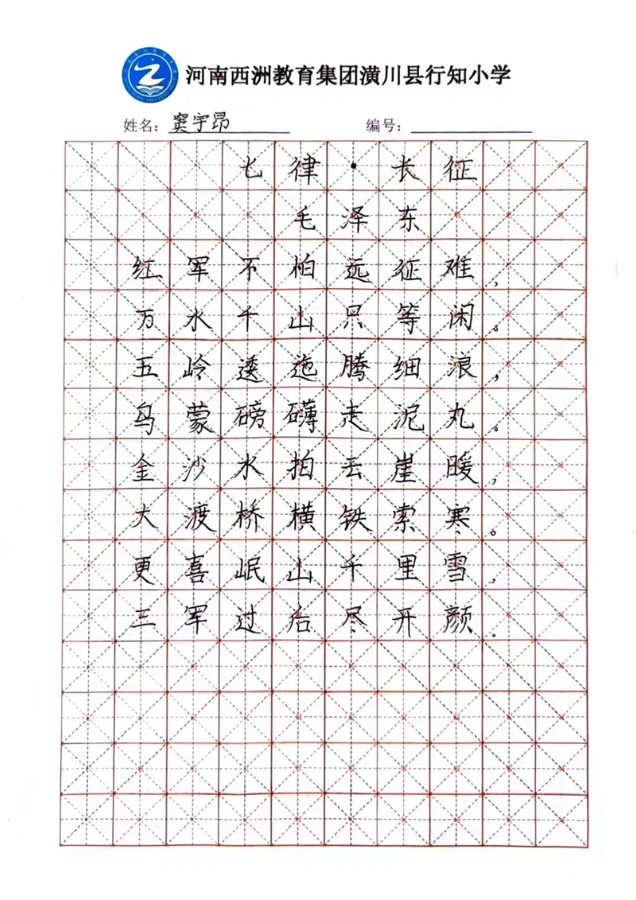 河南西洲教育集团潢川县行知小学
姓名：窦宇昂 编号：
七律·长征
毛泽东
红军不怕远征难，
万水千山只等闲。
五岭逶迤腾细浪，
乌蒙磅礴走泥丸。
金沙水拍云崖暖，
大渡桥横铁索寒。
更喜岷山千里雪，
三军过后尽开颜。